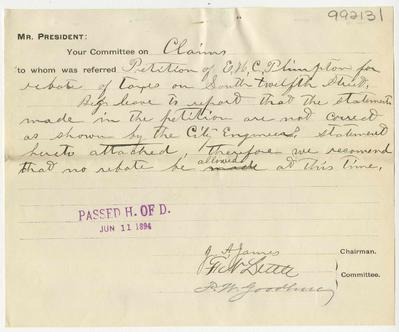 992131
MR. PRESIDENT:
Your Committee on Claims
to whom was referred Petition of E. W. C. Plimpton for
rebate of taxes on South twelfth Street,
Begs leave to report that the statements
made in the petition are not correct
as shown by the City Engineers statement
hereto attached, therefore we recomend
that no rebate be made allowed at this time.
PASSED H. OF D.
JUN 11 1894
J. A. James Chairman.
Committee.
P. W. Goodhue